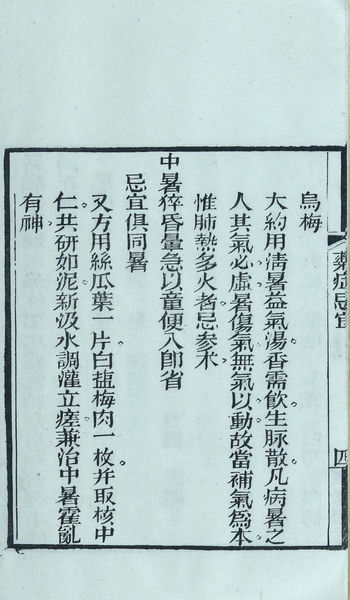 藥症忌宜
四
烏梅
大約用清暑益氣湯香需飲生脉散凡病暑之
人其氣必虛暑傷氣無氣以動故當補氣爲本
惟肺熱多火者忌參术
中暑猝昏暈急以童便入卽省
忌宜俱同暑
又方用絲瓜葉一片白鹽梅肉一枚并取核中
仁共研如泥新汲水調灌立瘥兼治中暑霍亂
有神